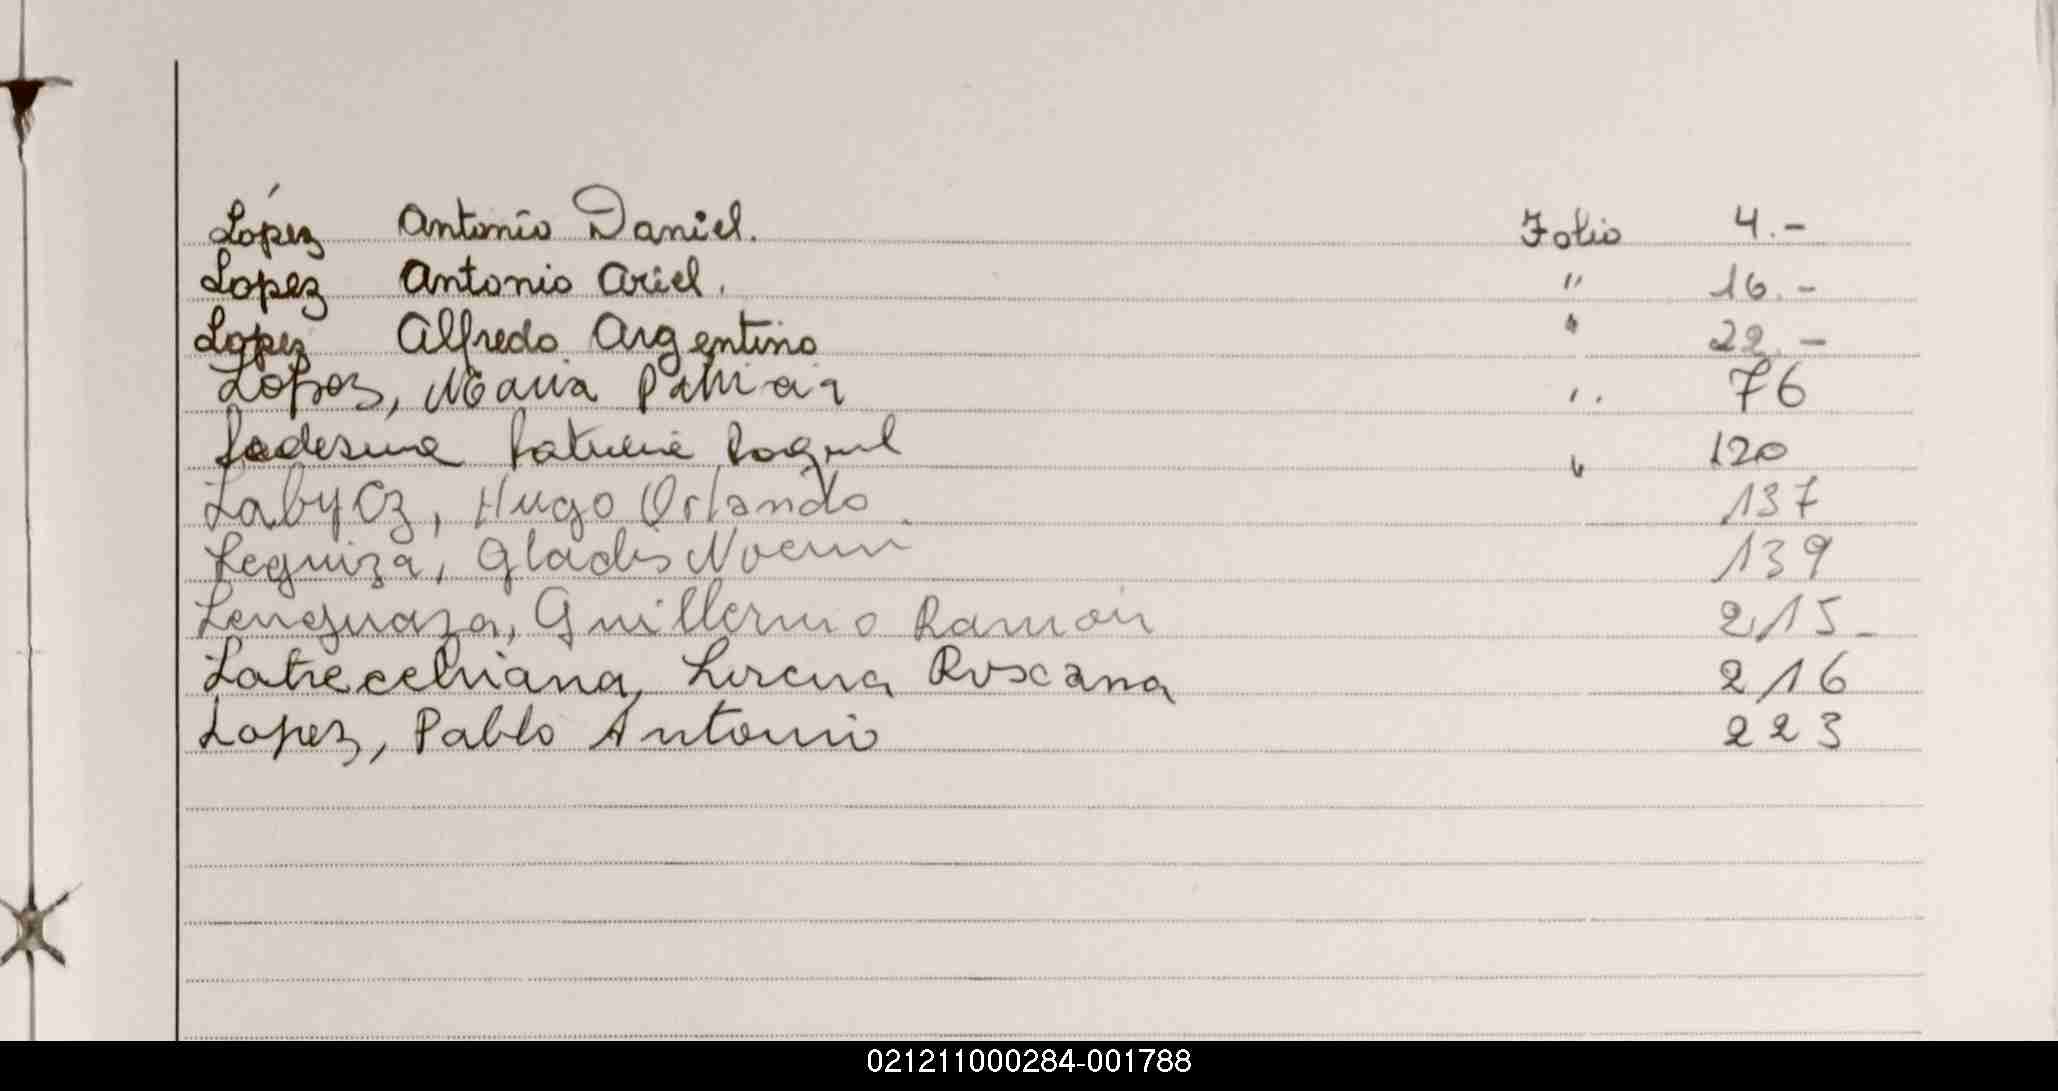 López Antonio Daniel. Folio 4.-
Lopez Antonio Ariel. " 16.-
Lopez Alfredo Argentino " 22.-
Lopez, Maria " 76
Ledesma Patricia Raquel " 120
Labycz, Hugo Orlando. 137
Leguiza, Gladis Noemi 139
Lenguaza, Guillermo Ramón 215-
Lorena Roxana 216
Lopez, Pablo Antonio 223
021211000284-001788